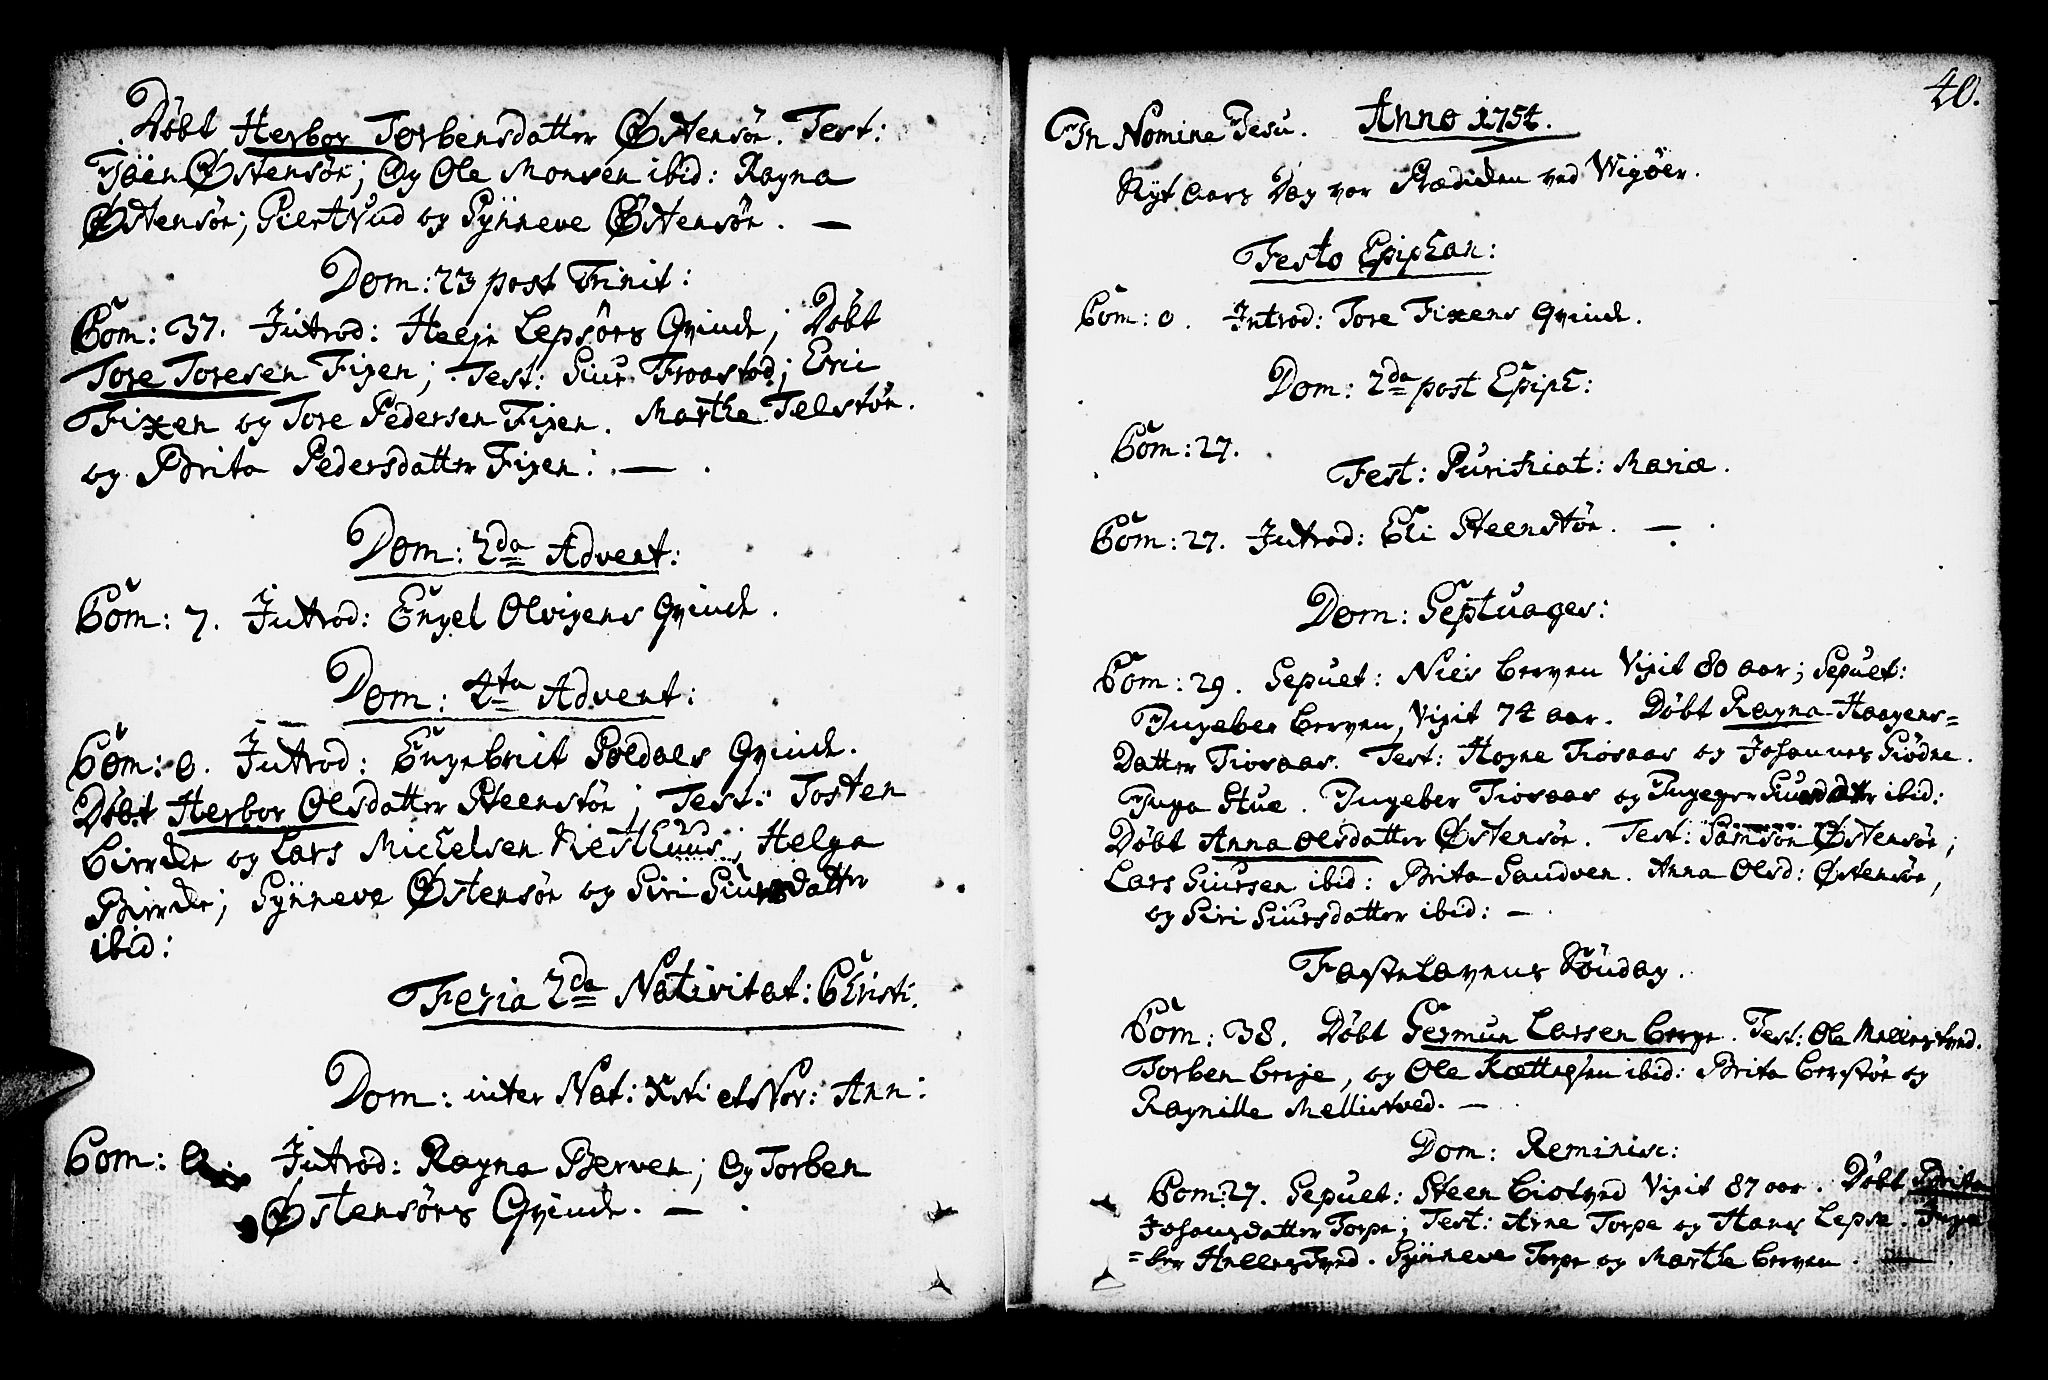 Døbt Herbor Torbensdatter Østensøe. Test:
Joen Østensøe; Og Ole Monsen ibid: Ragna
Østensøe; Giertrud og Synneve Østensøe. —
Dom: 23 post Trinit:
Com: 37. Introd: Helje Lepsøes Qvinde; Døbt
Tore Toresen Fixen; Test: Siur Froastad; Eric
Fixen og Tore Pedersen Fixen. Marthe Telstøe.
og Brita Pedersdatter Fixen: —
Dom: 2da Advent:
Com: 7. Introd: Engel Olvigens Qvinde.
Dom: 4ta Advent:
Com: 0. Introd: Engebrit Soldals Qvinde.
Døbt Herbor Olsdatter Steenstøe; Test: Tosten
Birche og Lars Michelsen Riesthuus; Helga
Birche; Synneve Østensøe og Siri Siursdatter
ibid:
Feria 2da Nativitat: Christi.
Dom: inter Nat: Xsti et Nov: Ann:
Com: 0. Introd: Ragna Berven; Og Torben
Østensøes Qvinde. —
40.
In Nomine Jesu. Anno 1754.
Nyt Aars Dag var Prædiken ved Wigøer.
Festo Epiphan:
Com: 0. Introd: Tore Fixens Qvinde.
Dom: 2da post Epiph:
Com: 27.
Fest: Purificat: Mariæ.
Com: 27. Introd: Eli Steenstøe. —
Dom: Septuages:
Com: 29. Sepult: Niels Berven Vixit 80 aar; Sepult:
Ingeber Berven, Vixit 74 aar. Døbt Ragna Haagens=
Datter Tiosaas. Test: Hogne Tiosaas og Johannes Giødne.
Inga Stue. Ingeber Tiosaas og Ingeger ibid:
Døbt Anna Olsdatter Østensøe. Test: Samson Østensøe;
Lars Siursen ibid: Brita Sandven. Anna Olsd: Østensøe,
og Siri Siursdatter ibid: —
Fastelavens Søndag.
Com: 38. Døbt Germun Larsen Berge. Test: Ole Mellestved.
Torben Berje, og Ole ibid: Brita Berstøe og
Ragnille Mellestved. —
Dom: Reminisc:
Com: 27. Sepult: Steen Biotved Vixit 87 aar. Døbt Brita
Johansdatter Torpe; Test: Arne Torpe og Hans Lepse. Inge
=ber Hellestved. Synneve Torpe og Marthe Berven. —